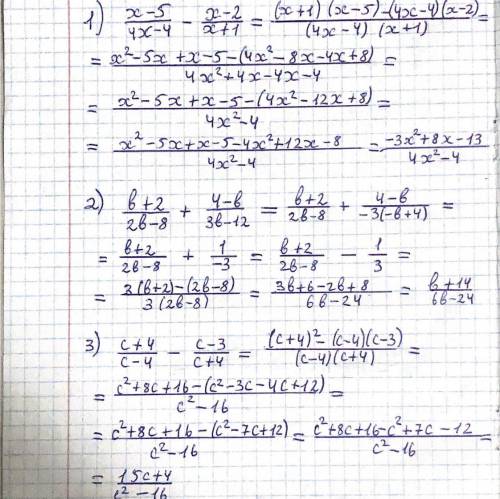 1) (x-5)/(4x-4) - (x-2)/(x+1) = ((x+1)(x-5)-(4x-4)(x-2))/((4x-4)(x+1)) =
= (x²-5x+x-5-(4x²-8x-4x+8))/(4x²+4x-4x-4) =
= (x²-5x+x-5-(4x²-12x+8))/(4x²-4) =
= (x²-5x+x-5-4x²+12x-8)/(4x²-4) = (-3x²+8x-13)/(4x²-4)
2) (в+2)/(2в-8) + (4-в)/(3в-12) = (в+2)/(2в-8) + (4-в)/(-3(-в+4)) =
= (в+2)/(2в-8) + 1/(-3) = (в+2)/(2в-8) - 1/3 =
= (3(в+2)-(2в-8))/(3(2в-8)) = (3в+6-2в+8)/(6в-24) = (в+14)/(6в-24)
3) (c+4)/(c-4) - (c-3)/(c+4) = ((c+4)²-(c-4)(c-3))/((c-4)(c+4)) =
= (c²+8c+16-(c²-3c-4c+12))/(c²-16) =
= (c²+8c+16-(c²-7c+12))/(c²-16) = (c²+8c+16-c²+7c-12)/(c²-16) =
= (15c+4)/(c²-16)